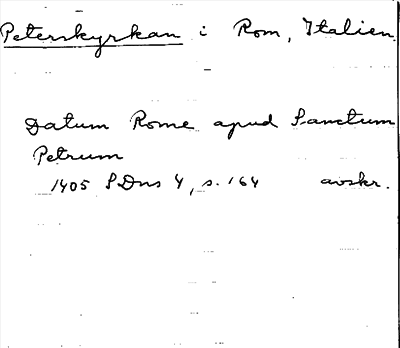 Peterskyrkan i Rom, Italien.
Datum Rome apud Sanctum
Petrum
1405 SDns 4, s. 164 avskr.